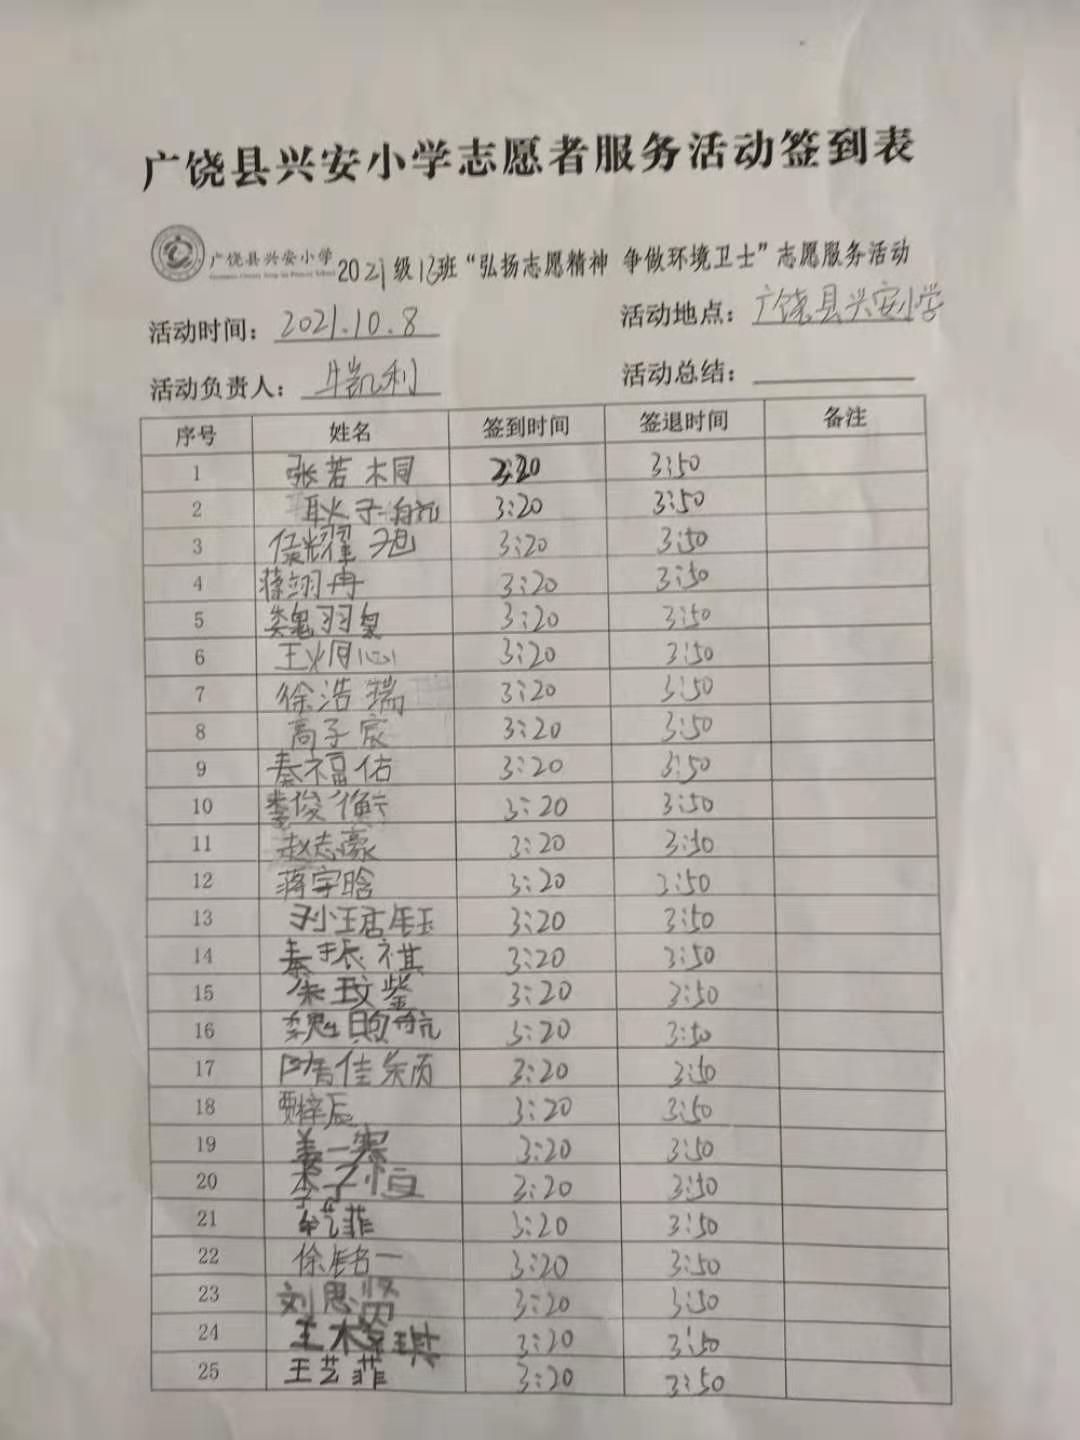 广饶县兴安小学志愿者服务活动签到表
广饶县兴安小学 2021级13班“弘扬志愿精神 争做环境卫士”志愿服务活动
活动时间：2021.10.8 活动地点：广饶县兴安小学
活动负责人：牛凯利 活动总结：
序号 姓名 签到时间 签退时间 备注
1 张若桐 3:20 3:50
2 耿子航 3:20 3:50
3 侯耀旭 3:20 3:50
4 蒋翊冉 3:20 3:50
5 魏羽 3:20 3:50
6 王炯心 3:20 3:50
7 徐浩瑞 3:20 3:50
8 高子宸 3:20 3:50
9 秦福佑 3:20 3:50
10 李俊衡 3:20 3:50
11 赵志豪 3:20 3:50
12 蒋宇晗 3:20 3:50
13 3:20 3:50
14 秦振祺 3:20 3:50
15 朱玟莹 3:20 3:50
16 魏航 3:20 3:50
17 佳 3:20 3:50
18 贾梓辰 3:20 3:50
19 姜一 3:20 3:50
20 李子恒 3:20 3:50
21 艺菲 3:20 3:50
22 徐铭一 3:20 3:50
23 刘思贤 3:20 3:50
24 王木琪 3:20 3:50
25 王艺菲 3:20 3:50